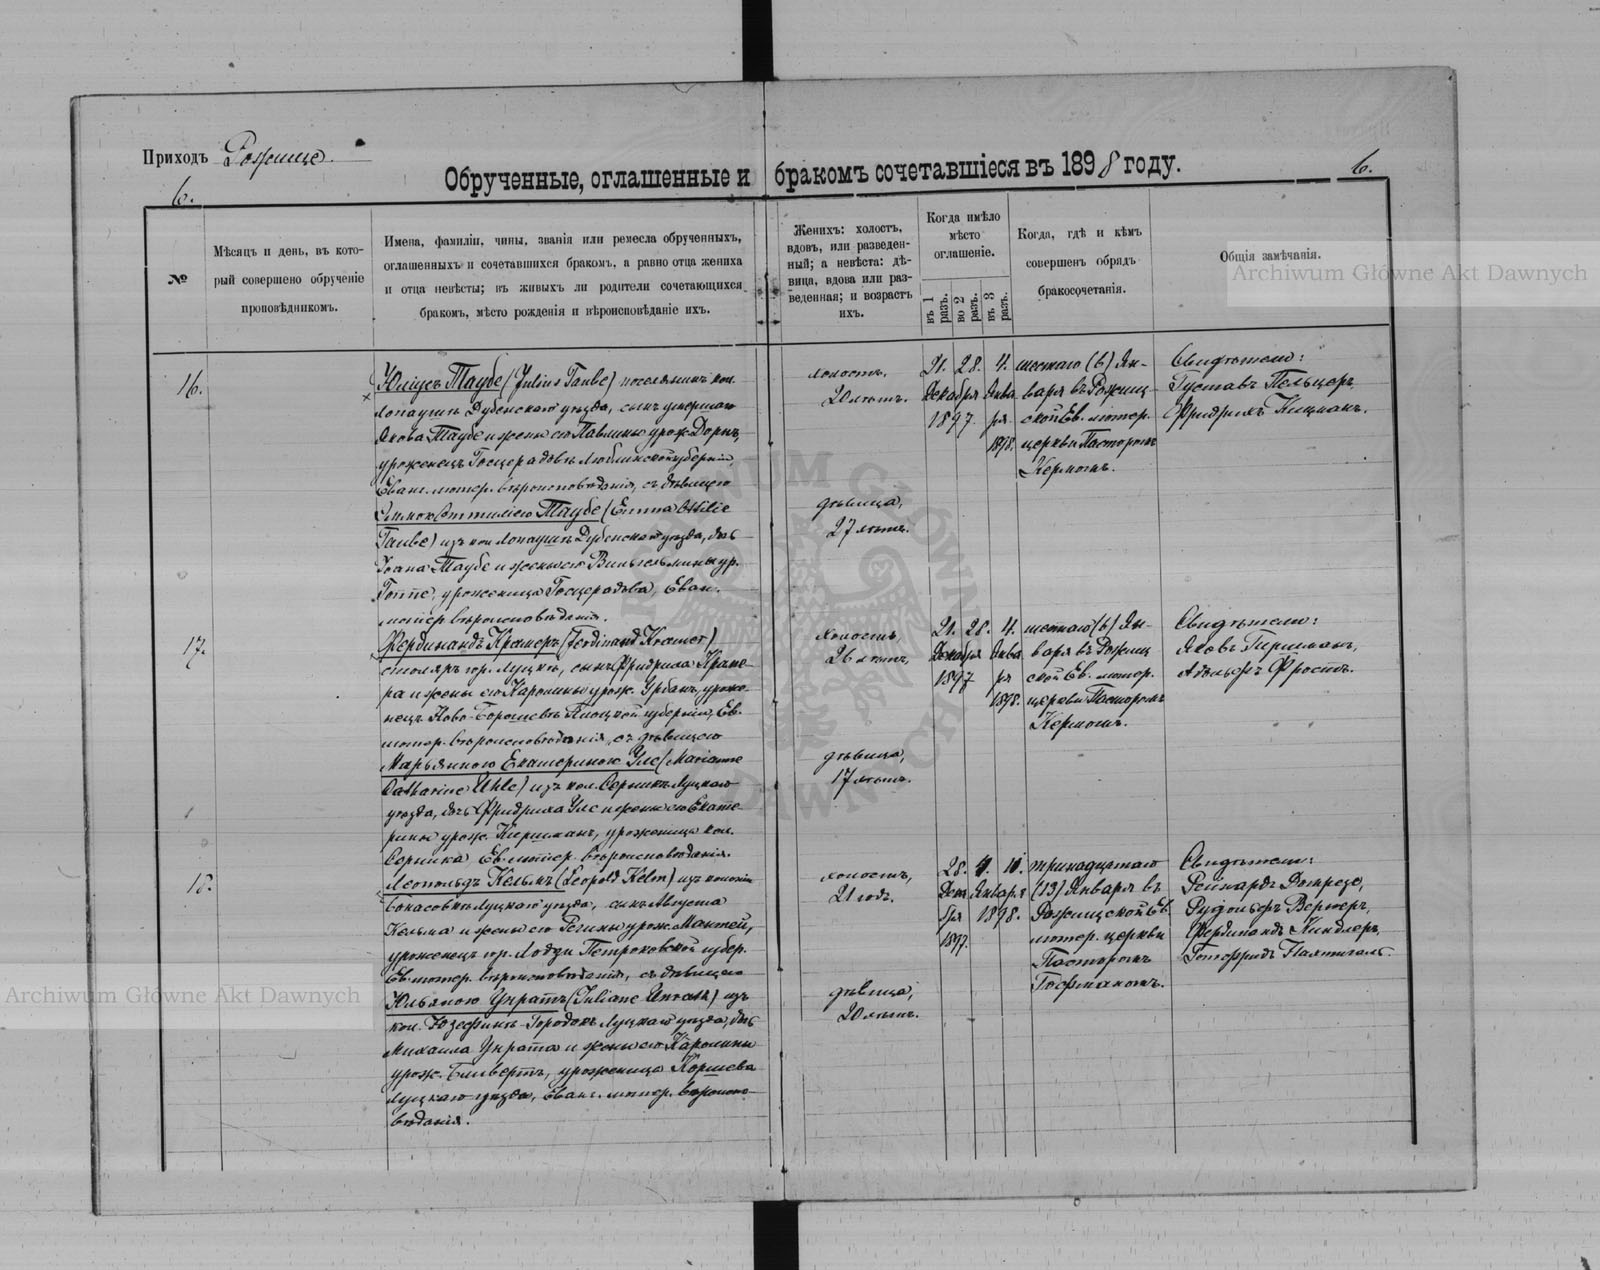 Приходъ Рожище.
6.
Обрученные, оглашенные и бракомъ сочетавшіеся въ 1898 году.
6.
№
Мѣсяцъ и день, въ который совершено обрученіе проповѣдникомъ.
Имена, фамиліи, чины, званія или ремесла обрученныхъ,
оглашенныхъ и сочетавшихся бракомъ, а равно отца жениха
и отца невѣсты; въ живыхъ ли родители сочетающихся
бракомъ, мѣсто рожденія и вѣроисповѣданіе ихъ.
Женихъ: холостъ,
вдовъ, или разведен-
ный; а невѣста: дѣ-
вица, вдова или раз-
веденная; и возрастъ
ихъ.
Когда имѣло
мѣсто
оглашеніе.
въ 1 разъ.
во 2 разъ.
въ 3 разъ.
Когда, гдѣ и кѣмъ
совершенъ обрядъ
бракосочетанія.
Общія замѣчанія.
Archiwum Główne Akt Dawnych
16.
Юліусъ Таубе (Julius Taube) поселянинъ кол.
Лопаушъ Дубенскаго уѣзда, сынъ умершаго
Якова Таубе и жены его Павлины урож. Дорнъ,
уроженецъ Госцерадовъ Люблинской губерніи,
Еванг. лютер. вѣроисповѣданія, съ дѣвицею
Эммою Оттиліею Таубе (Emma Ottilie
Taube) изъ кол. Лопаушъ Дубенскаго уѣзда, дочь
Іоана Таубе и жены его Вильгельмины ур.
Гоппе, уроженица Госцерадова, Еван.
лютер. вѣроисповѣданія.
холостъ,
20 лѣтъ.
дѣвица,
27 лѣтъ.
21. 28. 4.
Декабря Янва
1897 ря
1898.
шестаго (6) Ян-
варя въ Рожищ-
ской Ев. лютер.
церкви Пасторомъ
Кермомъ.
Свидѣтели:
Густавъ Пельцеръ,
Фридрихъ Кицманъ.
17.
Фердинандъ Крамеръ (Ferdinand Kramer)
столяръ гор. Луцкъ, сынъ Фридриха Краме-
ра и жены его Каролины урож. Урбанъ, уроже-
нецъ Плоцкой губерніи, Ев.
лютер. вѣроисповѣданія, съ дѣвицею
Марьянною Екатериною Уле (Marianne
Catharine Uhle) изъ кол. Луцкаго
уѣзда, дочь Фридриха Уле и жены его Екате-
рины урож. уроженица кол.
Ев. лютер. вѣроисповѣданія.
холостъ,
26 лѣтъ,
дѣвица,
17 лѣтъ.
21. 28. 4.
Декабря Янва
1897 ря
1898.
шестаго (6) Ян-
варя въ Рожищ
ской Ев. лютер.
церкви Пасторомъ
Кермомъ.
Свидѣтели:
Яковъ
Адольфъ Фростъ.
18.
Леопольдъ Кельмъ (Leopold Kelm) изъ колоніи
Луцкаго уѣзда, сынъ Августа
Кельма и жены его Регины урож. Мантей,
уроженецъ гор. Лодзи Петроковской губер.
Ев. лютер. вѣроисповѣданія, съ дѣвицею
Юльяною Унратъ (Juliane Unrath) изъ
кол. Юзефинъ-Городокъ Луцкаго уѣзда, дочь
Михаила Унрата и жены его Каролины
урож. уроженица Коршева
Луцкаго уѣзда, Еванг. лютер. вѣроиспо-
вѣданія.
холостъ,
21 годъ.
дѣвица,
20 лѣтъ.
28. 4. 11.
Дека Января
бря 1898.
1897.
тринадцатаго
(13) Января въ
Рожищской Ев.
лютер. церкви
Пасторомъ
Гофманомъ.
Свидѣтели:
Рейнардъ
Рудольфъ Вернеръ,
Фердинандъ Киндлеръ,
Готфридъ Нахтигаль.
Archiwum Główne Akt Dawnych
ARCHIWUM GŁÓWNE AKT DAWNYCH